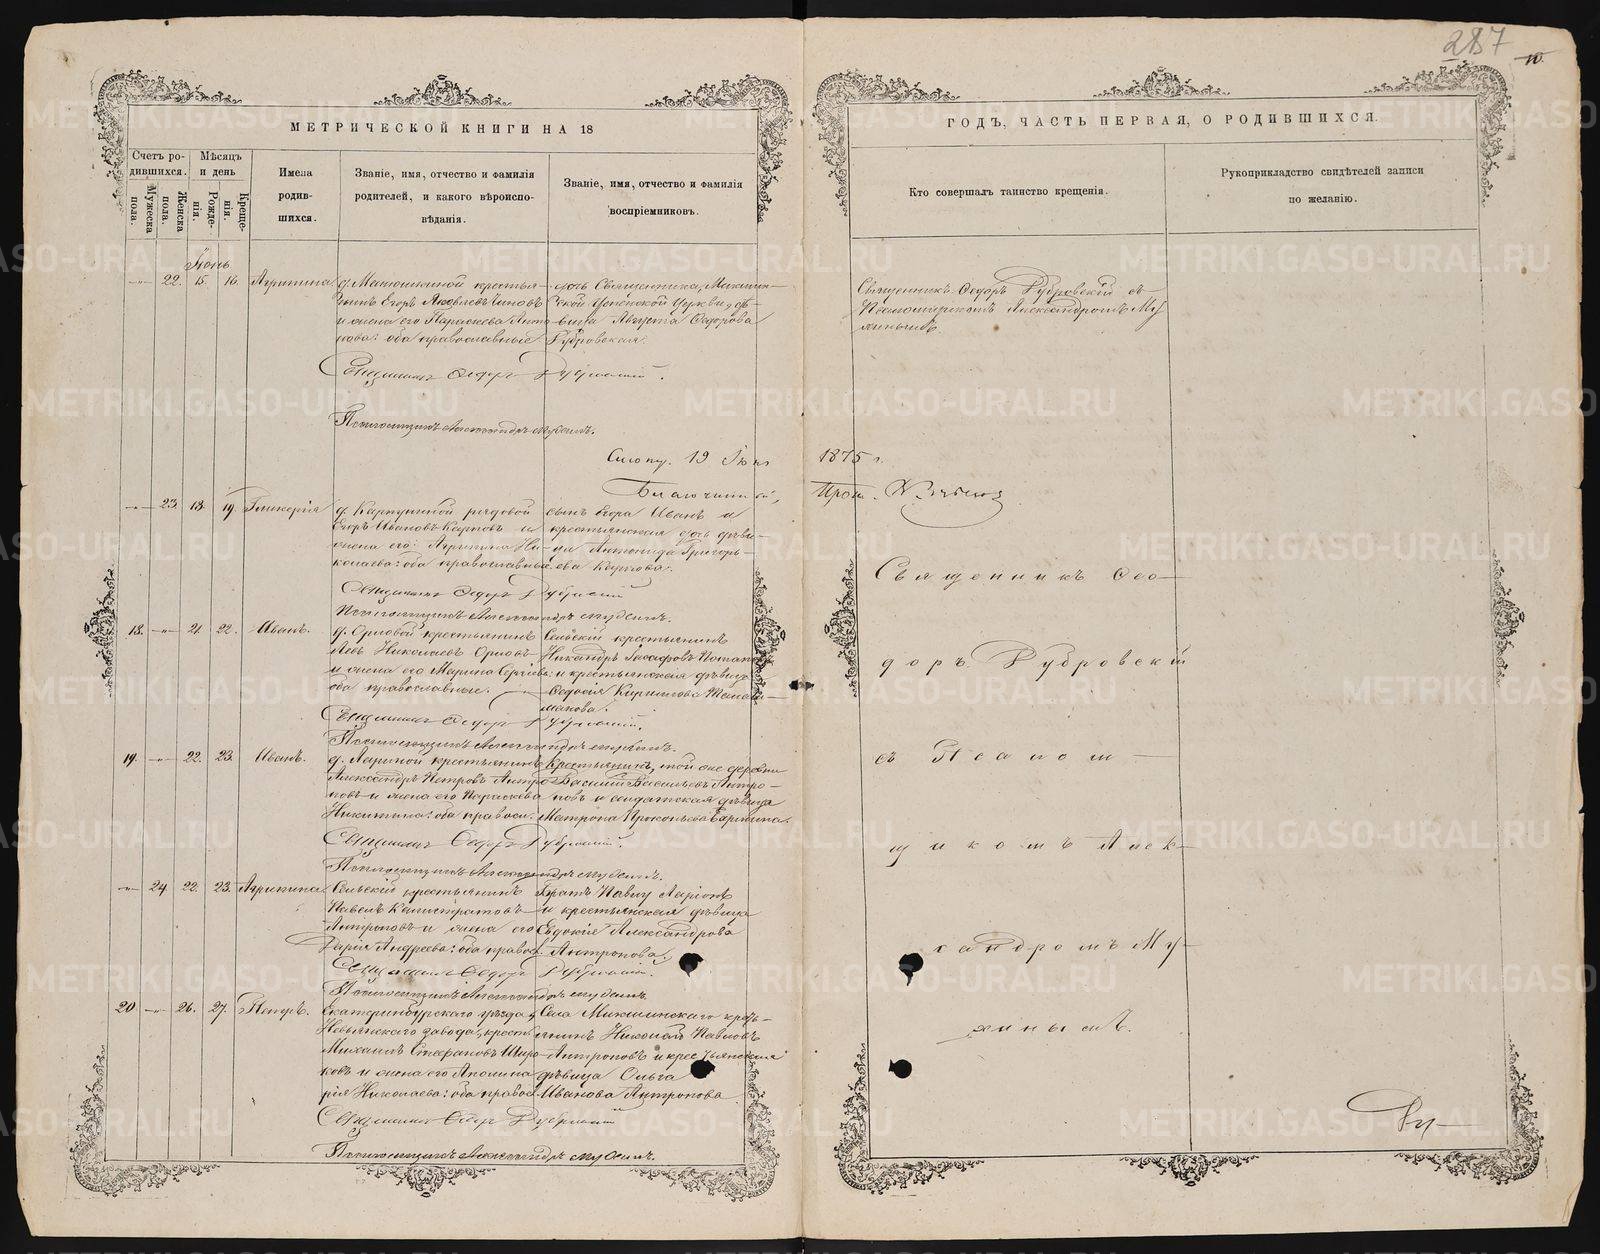 287
10
МЕТРИЧЕСКОЙ КНИГИ НА 18
ГОДЪ, ЧАСТЬ ПЕРВАЯ, О РОДИВШИХСЯ.
Счетъ родившихся.
Мужеска пола.
Женска пола.
Мѣсяцъ и день
Рожденія.
Крещенія.
Имена родившихся.
Званіе, имя, отчество и фамилія родителей, и какого вѣроисповѣданія.
Званіе, имя, отчество и фамилія воспріемниковъ.
Кто совершалъ таинство крещенія.
Рукоприкладство свидѣтелей записи по желанію.
Іюнь
22. 15. 16. Агрипина
крестья-
нинъ Егоръ Яковлевъ
и жена его Параскева Анто-
нова: оба православные
дочь Священника
ской церкви, дѣ-
вица Августа Ѳедорова
Рубровская.
Священникъ Ѳедоръ Рубровскій съ
Псаломщикомъ Александромъ Му-
хинымъ.
Священникъ Ѳедоръ Рубровскій.
Псаломщикъ Александръ Мухинъ.
19 Іюня 1875 г.
Благочинный,
23. 18. 19. Гликерія
д. Карпушиной рядовой
Егоръ Ивановъ Карповъ и
жена его Агрипина Ни-
колаева: оба православные
сынъ Егора Иванъ и
крестьянская дочь дѣви-
ца Антонида Григорь-
ева Карпова.
Священникъ Ѳедоръ Рубровскій
Псаломщикъ Александръ Мухинъ.
18. 21. 22. Иванъ.
д. Орловой крестьянинъ
Левъ Николаевъ Орловъ
и жена его Марина Сергіева
оба православные.
Сельскій крестьянинъ
Никандръ
и крестьянская дѣвица
Ѳедосія Кирилова
Священникъ Ѳедоръ Рубровскій.
Псаломщикъ Александръ Мухинъ.
19. 22. 23. Иванъ.
крестьянинъ
Александръ Петровъ Антро-
повъ и жена его Параскева
Никитина: оба правосл.
Крестьянинъ той же деревни
Василій Васильевъ Антро-
повъ и солдатская дѣвица
Матрона Прокопьева
Священникъ Ѳедоръ Рубровскій.
Псаломщикъ Александръ Мухинъ.
24 22. 23. Агрипина
Сельскій крестьянинъ
Павелъ Калистратовъ
Антроповъ и жена его
Дарія Андреева: оба правосл.
Братъ Павлу Ларіонъ
и крестьянская дѣвица
Евдокія Александрова
Антропова.
Священникъ Ѳедоръ Рубровскій.
Псаломщикъ Александръ Мухинъ
20 26. 27. Петръ.
Екатеринбурскаго уѣзда
Невьянскаго завода, крест.
Михаилъ Стефановъ Широ-
ковъ и жена его Аполина-
рія Николаева: оба правосл.
Села Микшинскаго кресть-
янинъ Николай Павловъ
Антроповъ и крестьянская
дѣвица Ольга
Иванова Антропова
Священникъ Ѳедоръ Рубровскій
Псаломщикъ Александръ Мухинъ.
Священникъ Ѳео-
доръ Рубровскій
съ Псалом-
щикомъ Алек-
сандромъ Му-
хинымъ.
Ру-
METRIKI.GASO-URAL.RU